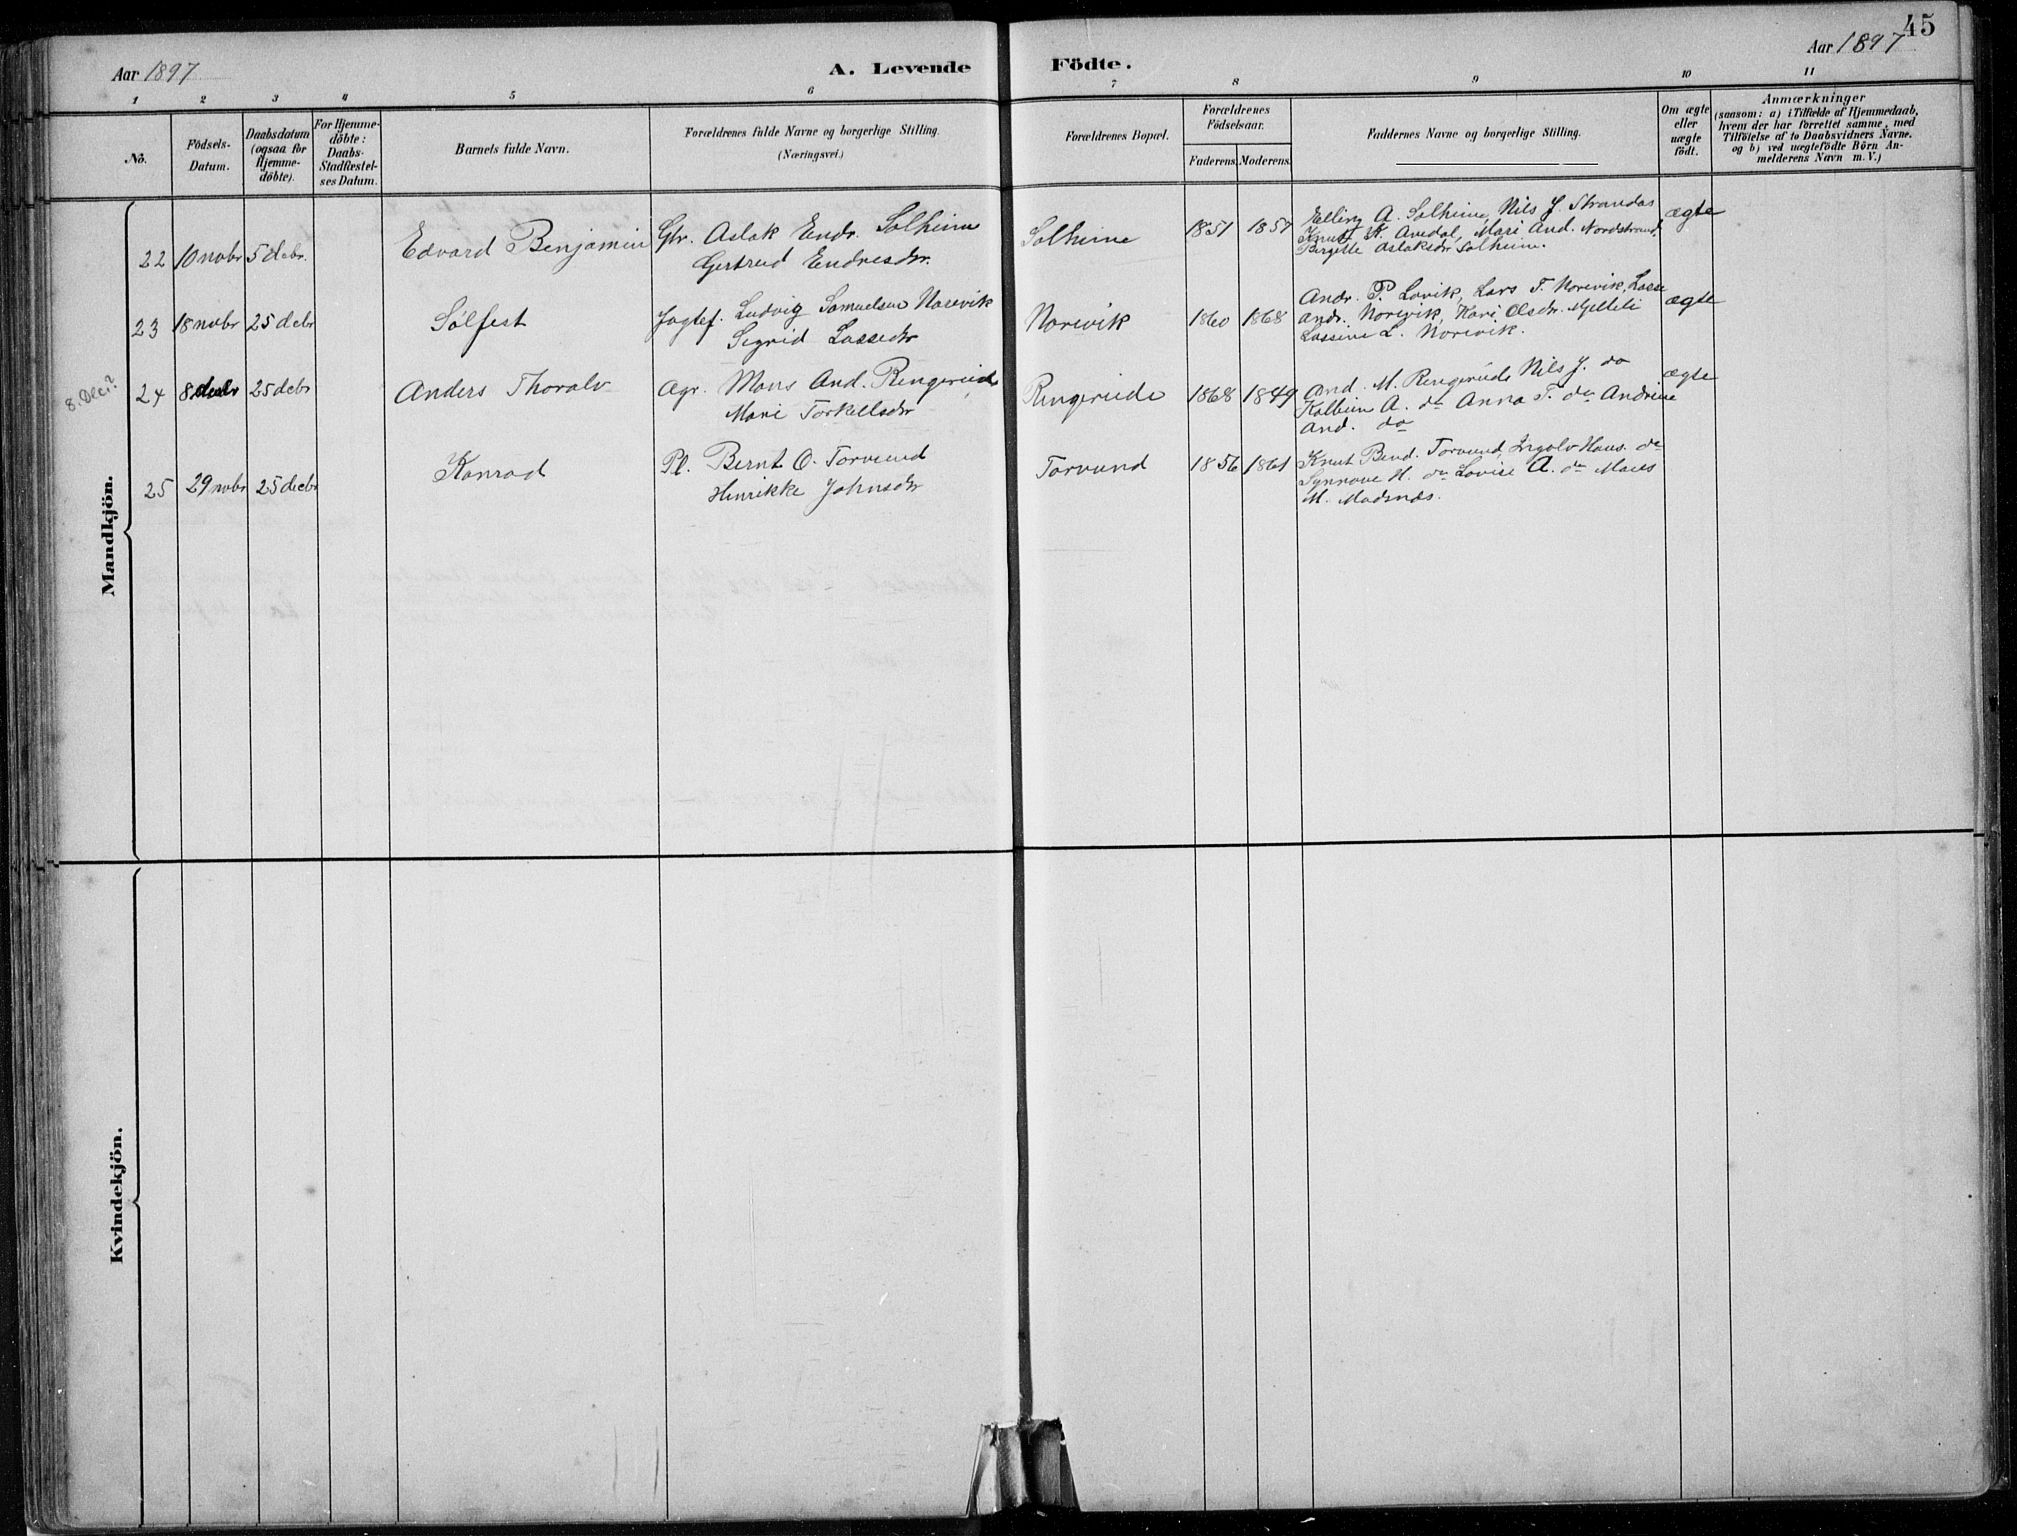 45
Aar 1897
A. Levende Födte.
Aar 1897
1 2 3 4 5 6 7 8 9 10 11
No.
Födsels-Datum.
Daabsdatum (ogsaa for Hjemme-döbte).
For Hjemme-döbte: Daabs-Stadfæstel-ses Datum.
Barnets fulde Navn.
Forældrenes fulde Navne og borgerlige Stilling.
(Næringsvei.)
Forældrenes Bopæl.
Forældrenes Födselsaar.
Faderens. Moderens.
Faddernes Navne og borgerlige Stilling.
Om ægte eller uægte födt.
Anmærkninger
(saasom: a) i Tilfælde af Hjemmedaab,
hvem der har forrettet samme, med
Tilföielse af to Daabsvidners Navne.
og b) ved uægtefödte Börn An-
melderens Navn m. V.)
Mandkjön.
22 10 novbr 5 debr. Edvard Benjamin Gbr. Aslak Endr. Solheim
Gertrud Endresdr.
Solheim 1851 1857
Elling A. Solheim, Nils J. Strandos
Knut K. Avedal, Mari And. Nordstrand,
Bergitte Aslaksdr Solheim.
ægte
23 18 nvbr 25 debr Sølfest Ludvig Samuelsen Norevik
Sigrid Lassedr
Norevik 1860 1868
Andr. P. Lavik, Lars T. Norevik, Lasse
Andr. Norevik, Kari Olsdr. Mjelteli
Lassine L. Norevik.
ægte
8. Dec.?
24 8 decbr 25 debr Anders Thoralv Agr. Mons And. Ringereide
Mari Torkelsdr
Ringereide 1868 1849
And. M. Ringereide Nils J. do
Kolbein A. do Anna T. do Andrine
And. do
ægte
25 29 nvbr 25 decbr Konrad Pl. Bernt O. Torvund
Henrikke Johnsdr
Torvund 1856 1861
Knut Bend. Torvund, Ingolv Hans. do
Synnøve H. do Lovise A. do Mons
M. Madsnes.
Kvindekjön.